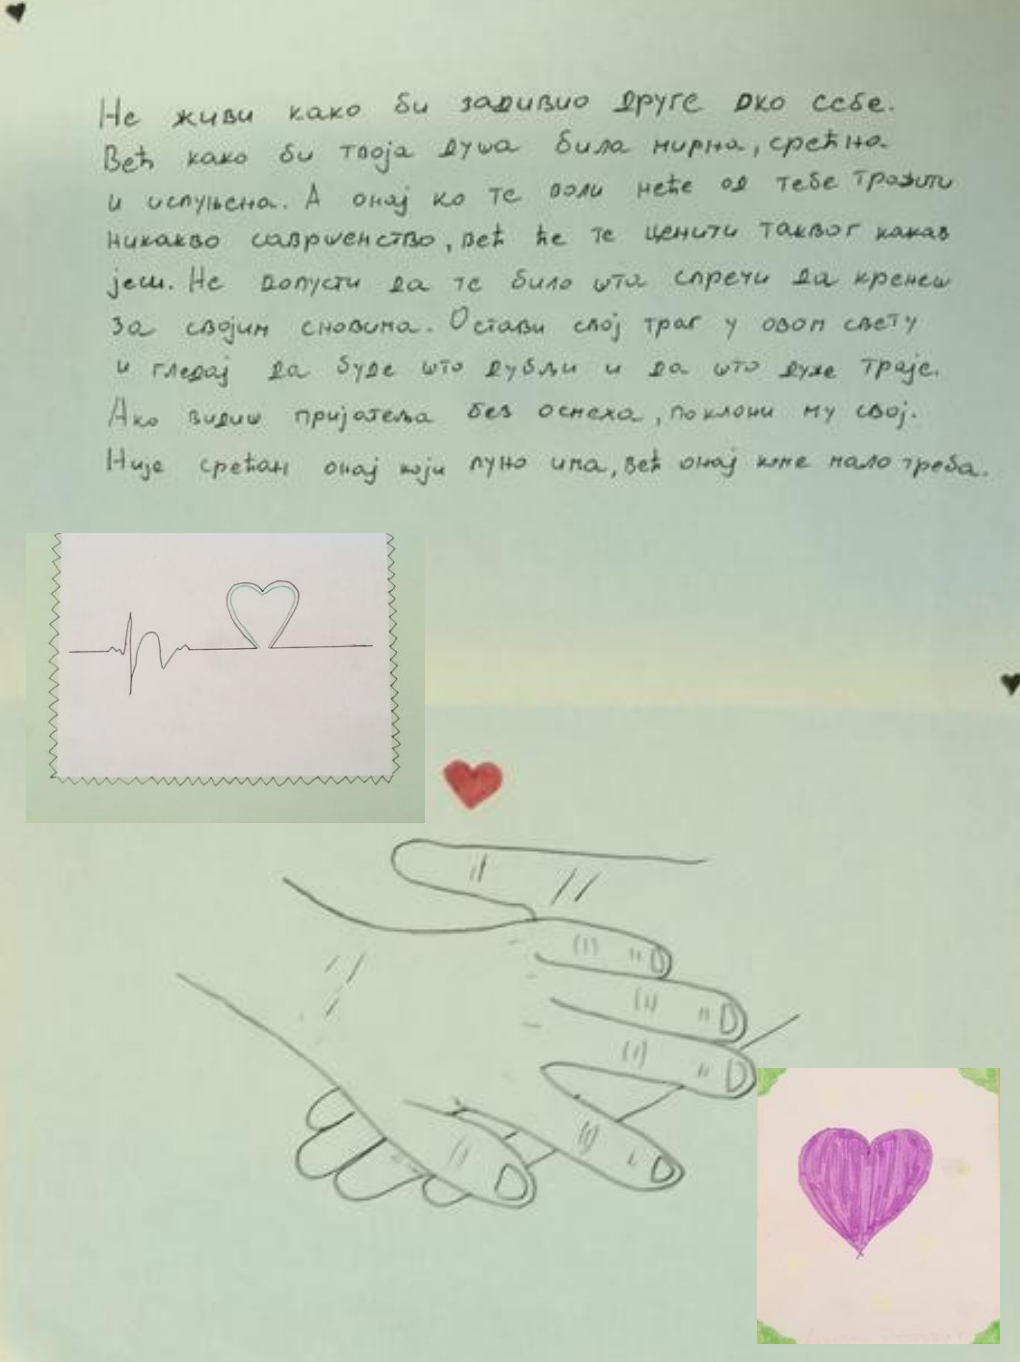 Не живи како би задивио друге око себе.
Већ како би твоја душа била мирна, срећна
и испуњена. А онај ко те воли неће од тебе тражити
никакво савршенство, већ ће те ценити таквог какав
јеси. Не допусти да те било шта спречи да кренеш
за својим сновима. Остави свој траг у овом свету
и гледај да буде што дубљи и да што дуже траје.
Ако видиш пријатеља без осмеха, поклони му свој.
Није срећан онај који пуно има, већ онај коме мало треба.